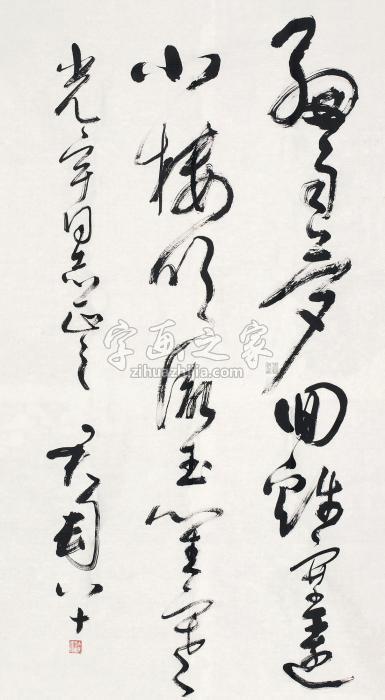 細雨夢回雞塞遠
小樓吹徹玉笙寒
光宇同志正之 君匋八十
字画之家
zihuazhijia.com